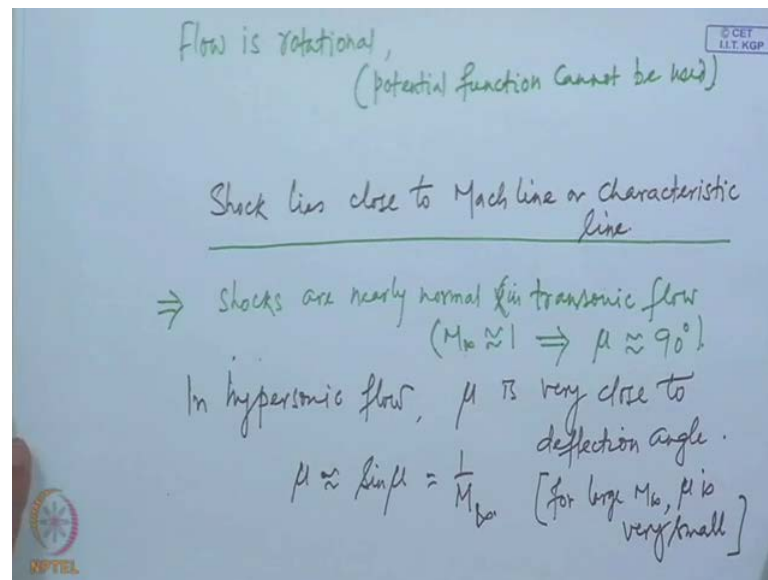 Flow is rotational,
© CET
I.I.T. KGP
(potential function cannot be used)
Shock lies close to Mach line or characteristic
line.
⇒ Shocks are nearly normal in transonic flow
(M∞ ≈ 1 ⇒ μ ≈ 90°).
In hypersonic flow, μ is very close to
deflection angle.
μ ≈ Sin μ = 1/M∞. [for large M∞, μ is
very small]
NPTEL